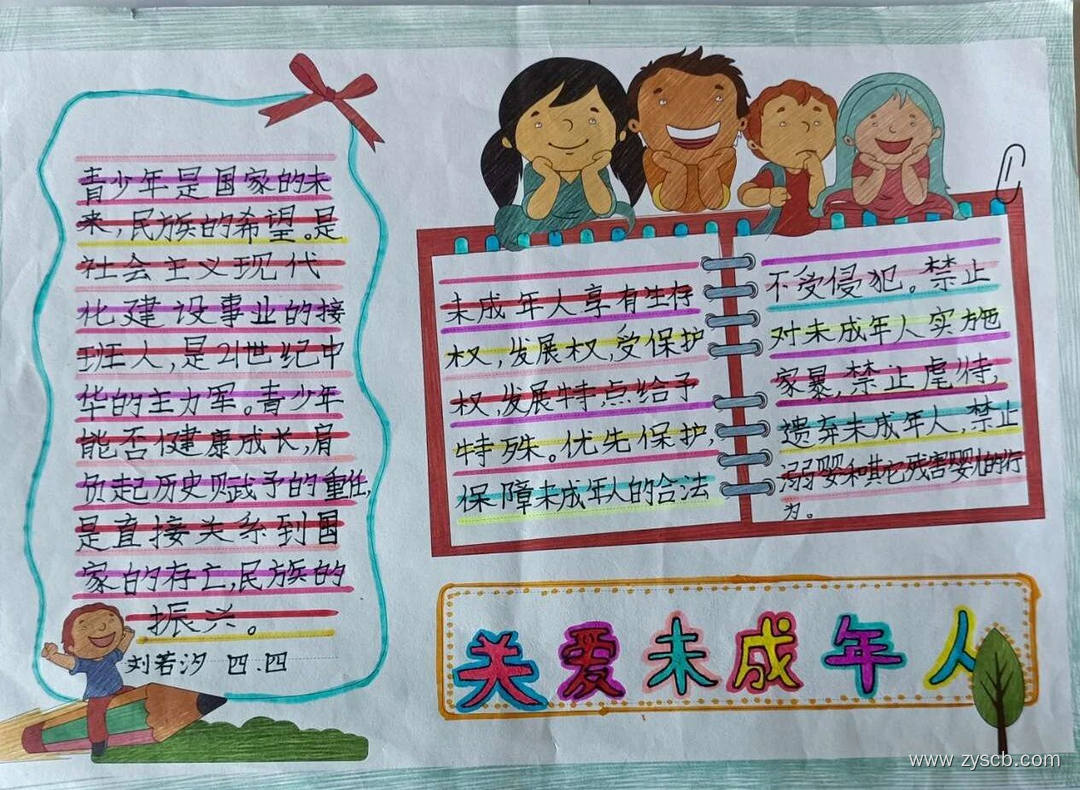 青少年是国家的未
来,民族的希望。是
社会主义现代
化建设事业的接
班人,是21世纪中
华的主力军。青少年
能否健康成长,肩
负起历史赋予的重任,
是直接关系到国
家的存亡,民族的
振兴。
刘若汐 四.四
未成年人享有生存
权,发展权,受保护
权,发展特点给予
特殊。优先保护,
保障未成年人的合法
不受侵犯。禁止
对未成年人实施
家暴,禁止虐待,
遗弃未成年人,禁止
溺婴和其它残害婴儿的行
为。
关爱未成年人
www.zyscb.com